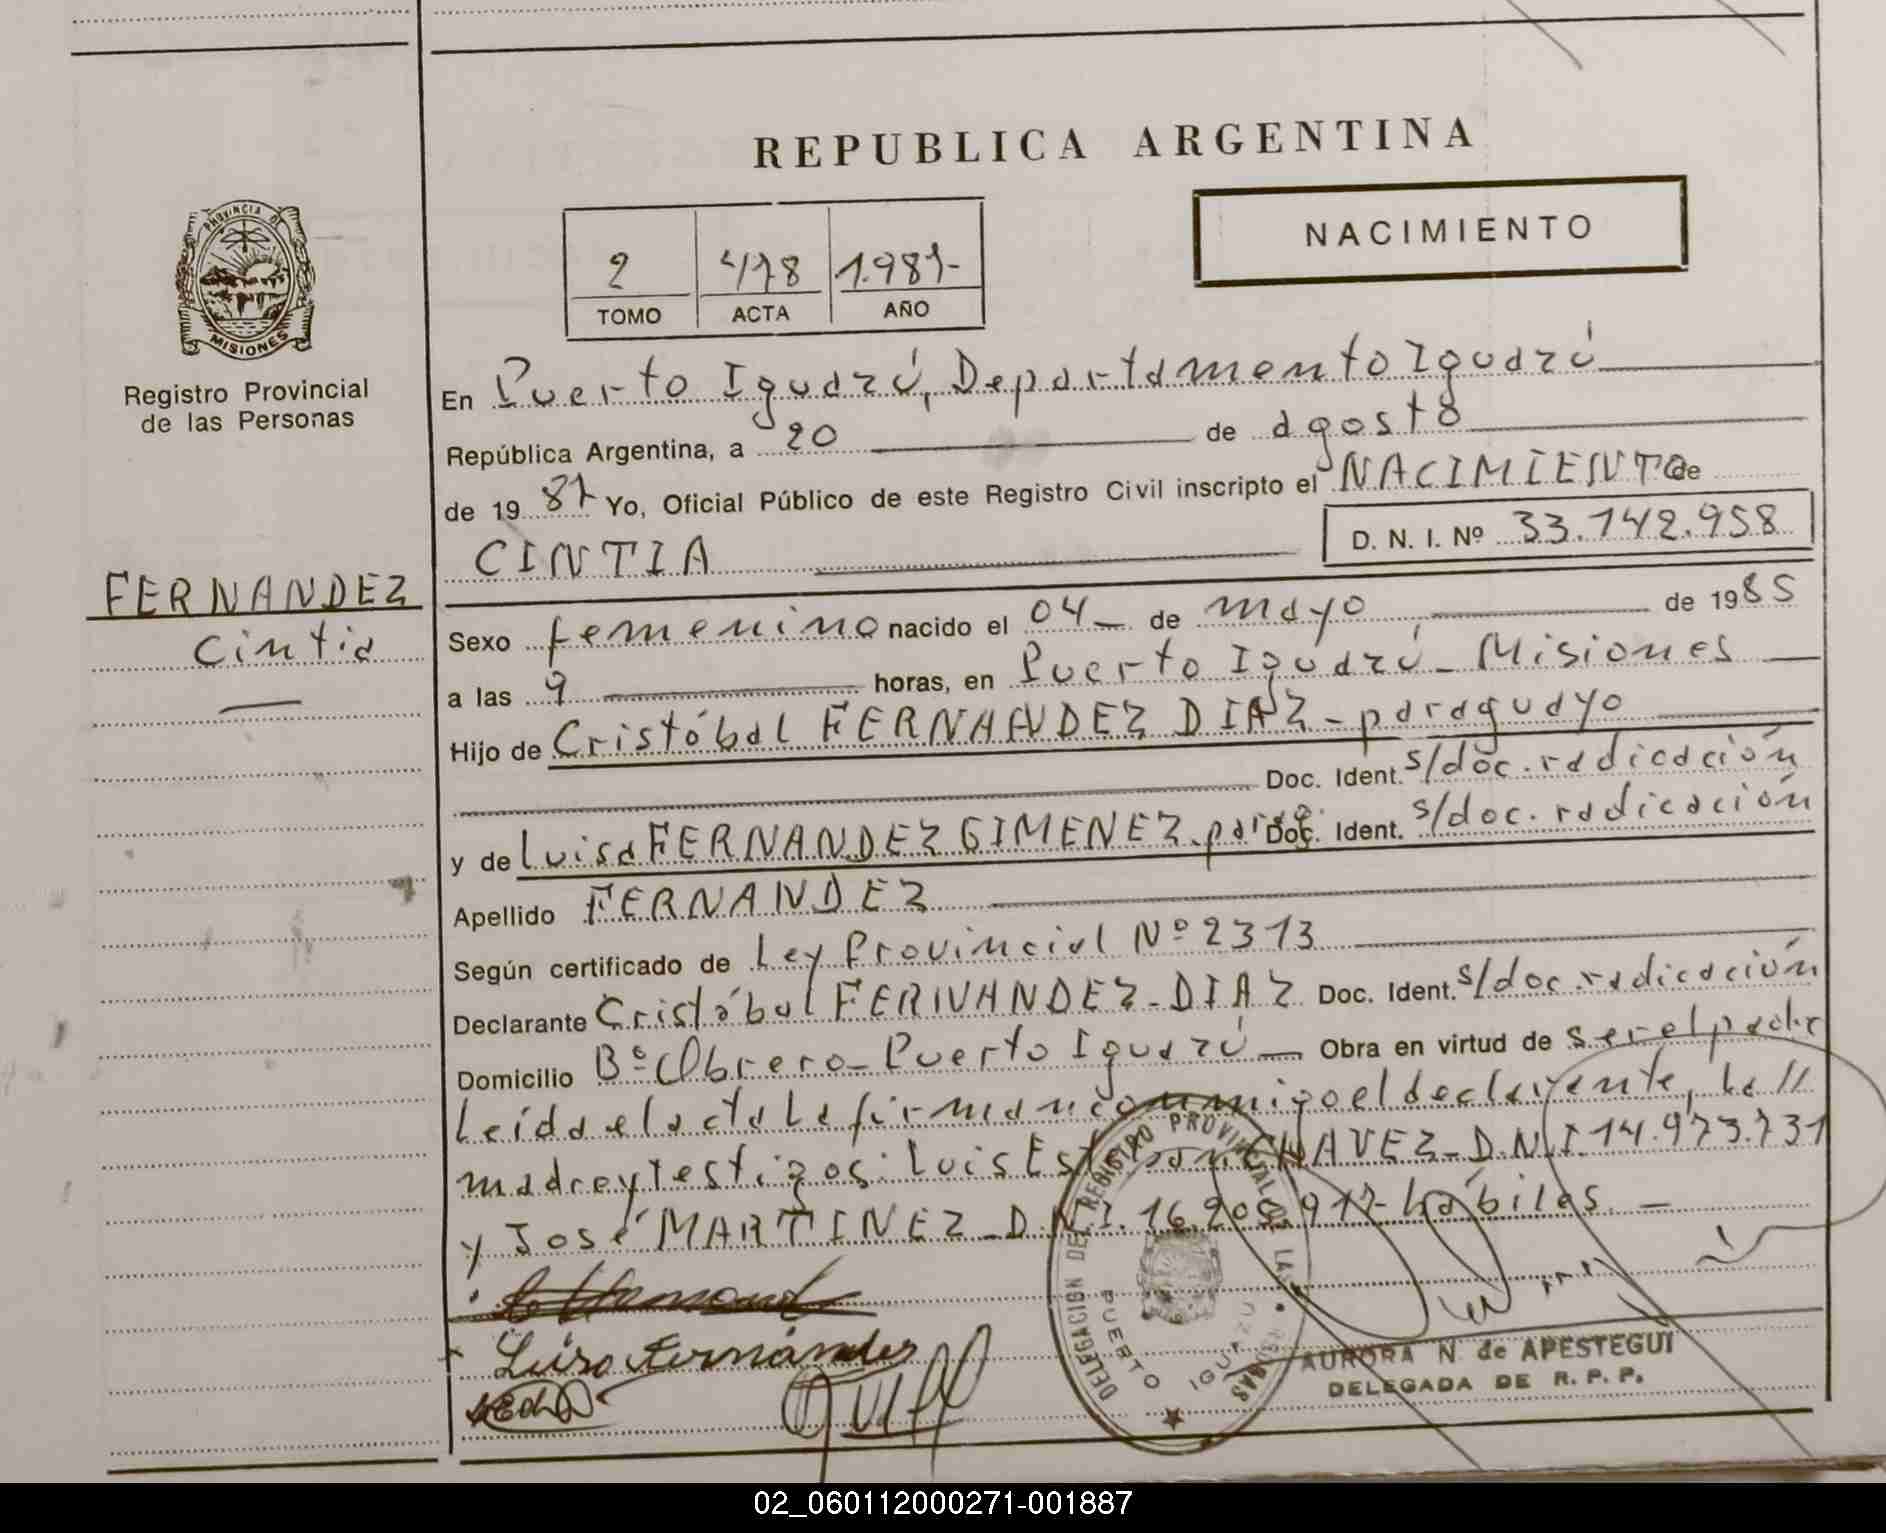 REPUBLICA ARGENTINA
NACIMIENTO
2 478 1.987-
TOMO ACTA AÑO
PROVINCIA DE
MISIONES
Registro Provincial
de las Personas
FERNANDEZ
Cintia
En Puerto Iguazú, Departamento Iguazú
República Argentina, a 20 de agosto
de 1987 Yo, Oficial Público de este Registro Civil inscripto el NACIMIENTO de
CINTIA D. N. I. Nº 33.142.958
Sexo femenino nacido el 04 de mayo de 1985
a las 9 horas, en Puerto Iguazú - Misiones
Hijo de Cristóbal FERNANDEZ DIAZ - paraguayo
Doc. Ident. s/doc. radicación
y de Luisa FERNANDEZ GIMENEZ - parag. Doc. Ident. s/doc. radicación
Apellido FERNANDEZ
Según certificado de Ley Provincial Nº 2313
Declarante Cristóbal FERNANDEZ - DIAZ Doc. Ident. s/doc. radicación
Domicilio Bº Obrero - Puerto Iguazú Obra en virtud de ser el padre
Leída el acta la firman conmigo el declarante, la //
madre y testigos: Luis Esteban CHAVEZ - D.N.I. 14.973.731
y José MARTINEZ - D.N.I. 16.200.917 - hábiles. -
Luisa Fernández
DELEGACION DEL REGISTRO PROVINCIAL DE LAS PERSONAS
PUERTO IGUAZU
AURORA N. de APESTEGUI
DELEGADA DE R. P. P.
02_060112000271-001887